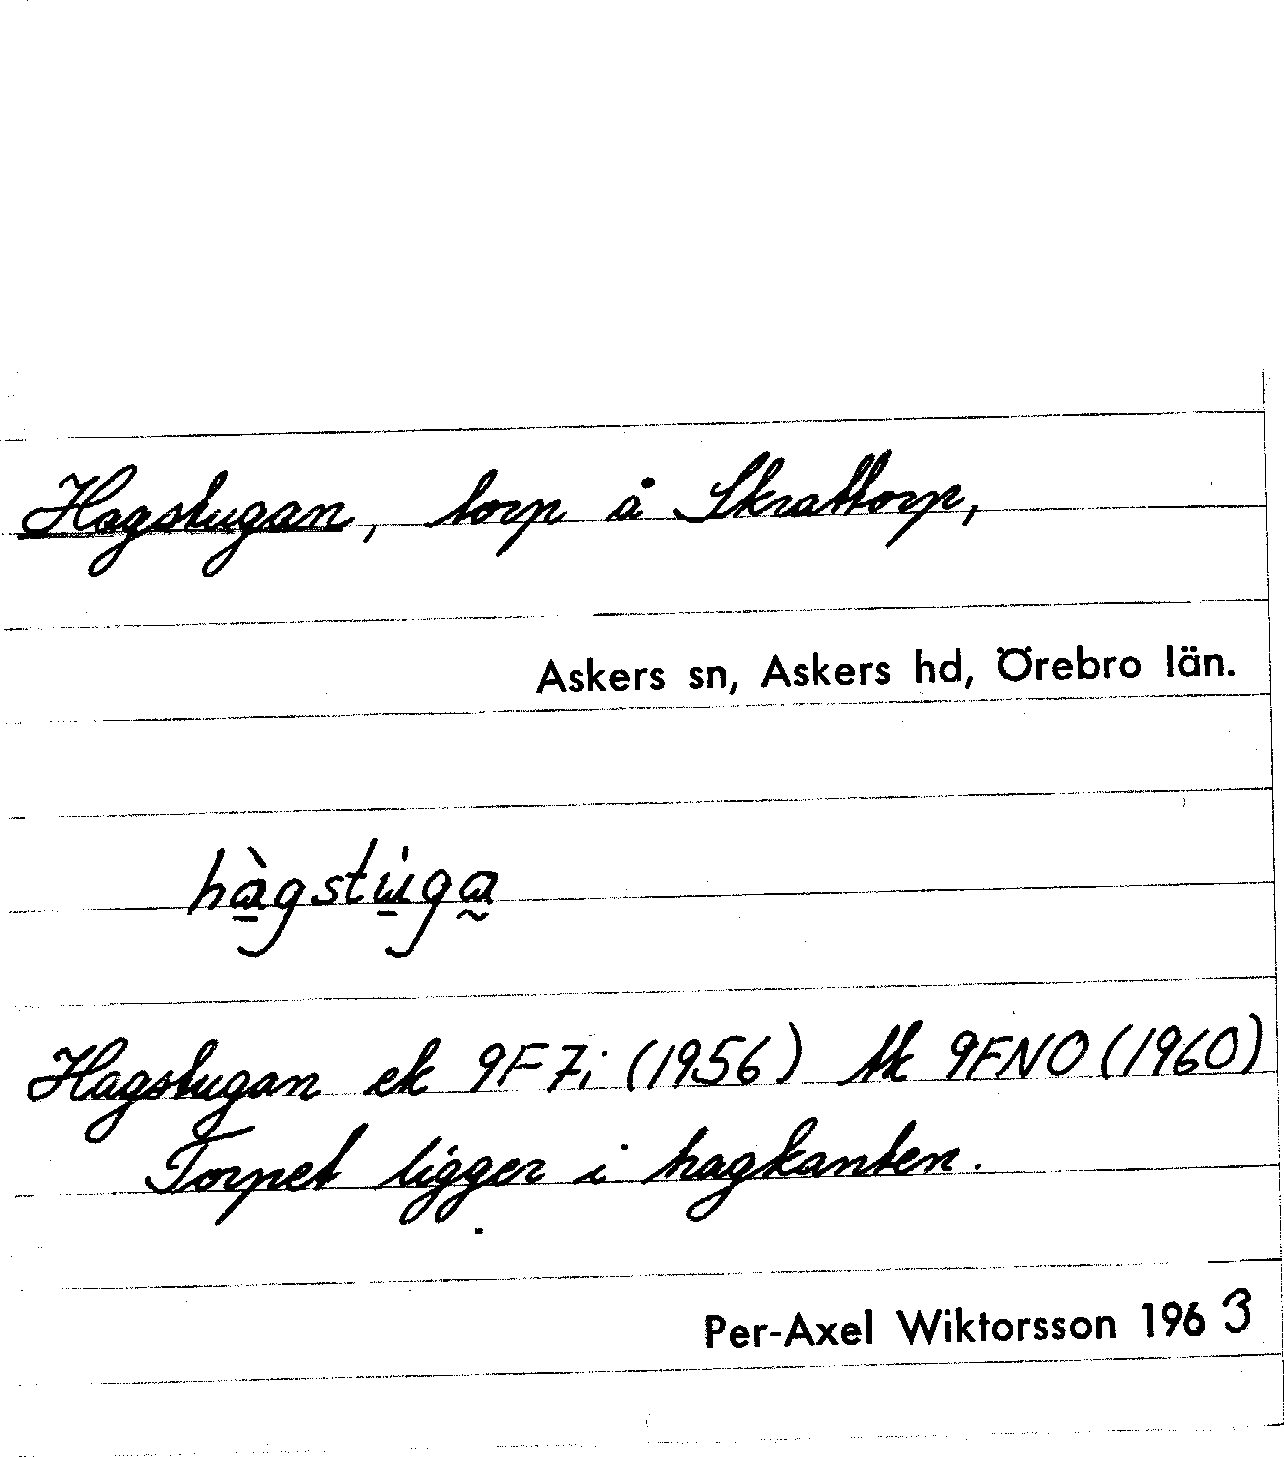 Hagstugan, torp å Skrattorp,
Askers sn, Askers hd, Örebro län.
hàgstu̍ga̰
Hagstugan ek 9F7i (1956) tk 9FNO (1960)
Torpet ligger i hagkanten.
Per-Axel Wiktorsson 1963